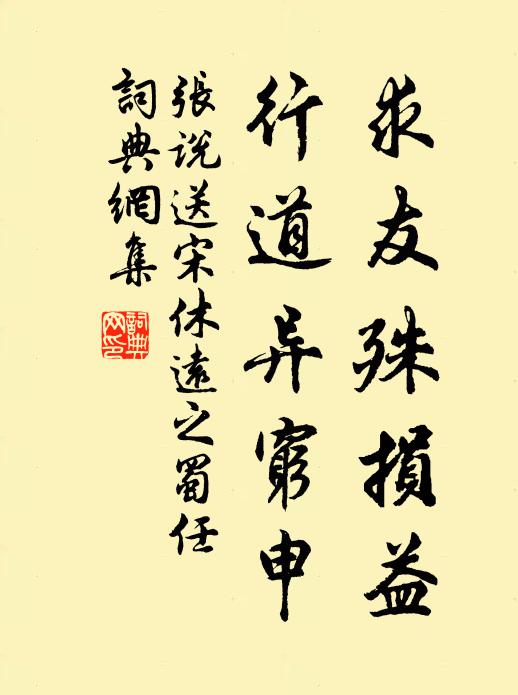 求友殊損益
行道异窮申
張説送宋休遠之蜀任
詞典網集
詞典網印